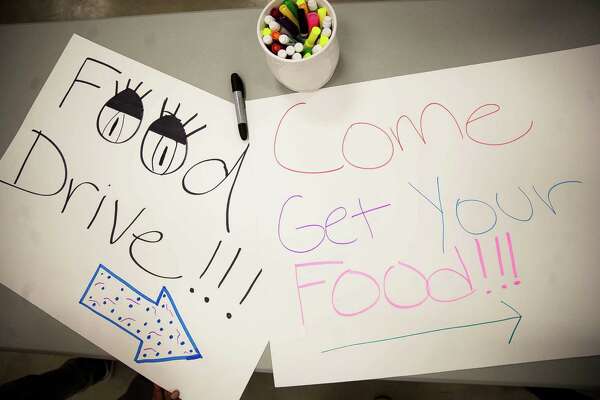 Food
Drive!!!
Come
Get Your
Food!!!